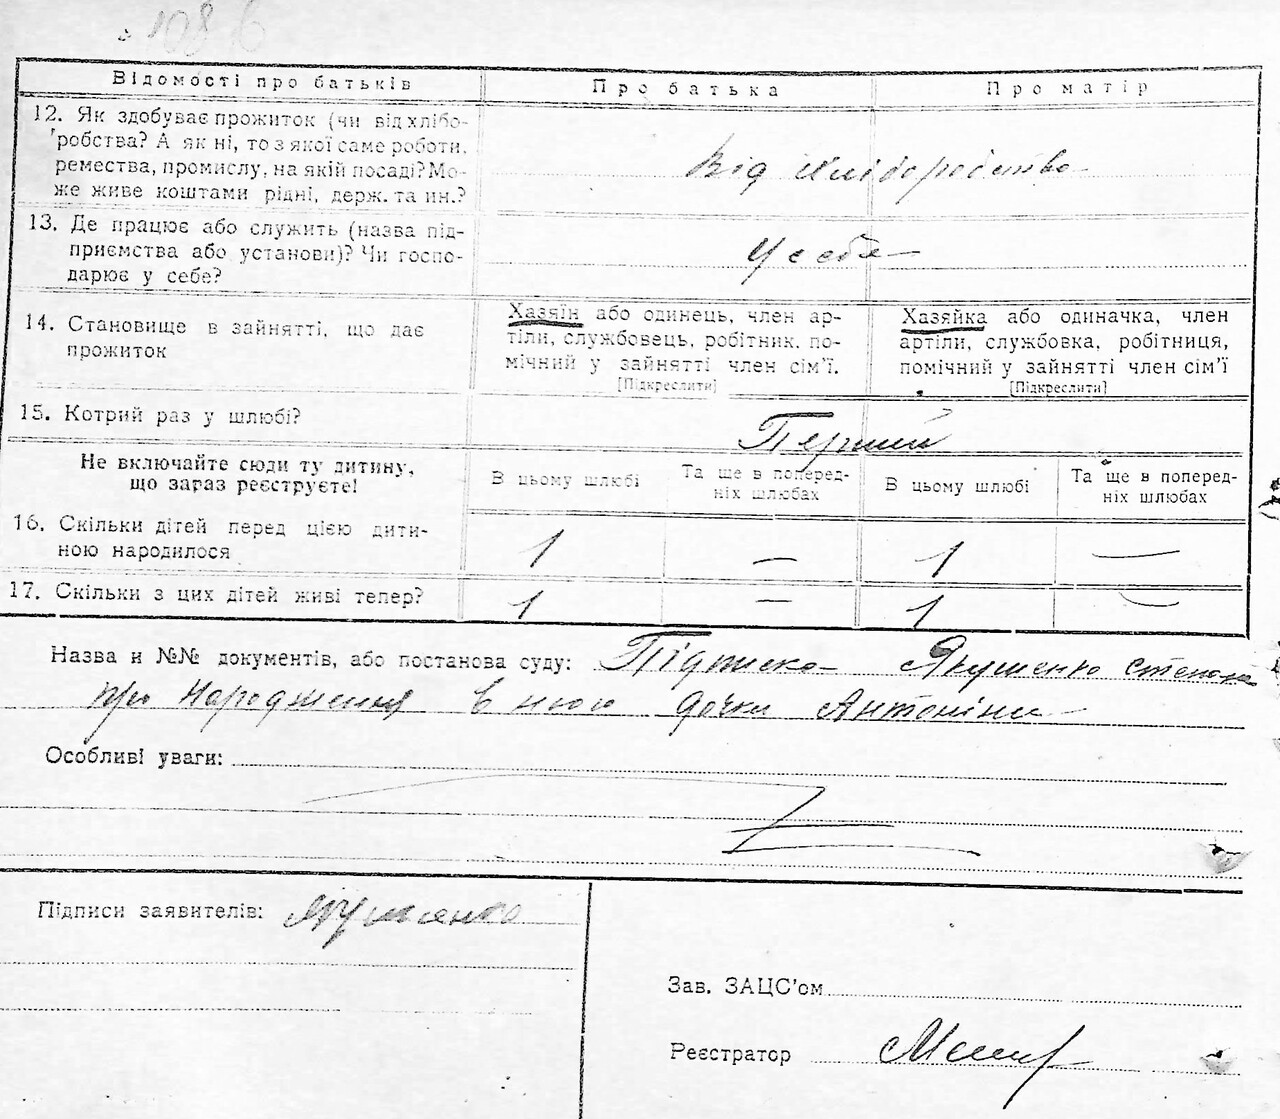 108 б
Відомості про батьків
Про батька
Про матір
12. Як здобуває прожиток (чи від хлібо-
робства? А як ні, то з якої саме роботи,
ремества, промислу, на якій посаді? Мо-
же живе коштами рідні, держ. та ин.?
Від хліборобства
13. Де працює або служить (назва під-
приємства або установи)? Чи госпо-
дарює у себе?
У себе
14. Становище в зайнятті, що дає
прожиток
Хазяїн або одинець, член ар-
тіли, службовець, робітник, по-
мічний у зайнятті член сім'ї.
[Підкреслити]
Хазяйка або одиначка, член
артіли, службовка, робітниця,
помічний у зайнятті член сім'ї
[Підкреслити]
15. Котрий раз у шлюбі?
Перший
Не включайте сюди ту дитину,
що зараз реєструєте!
В цьому шлюбі
Та ще в поперед-
ніх шлюбах
В цьому шлюбі
Та ще в поперед-
ніх шлюбах
16. Скільки дітей перед цією дити-
ною народилося
1 — 1 —
17. Скільки з цих дітей живі тепер?
1 — 1 —
Назва и №№ документів, або постанова суду: Підписка Якушенко Степана
про народження в нього дочки Антоніни
Особливі уваги:
Підписи заявителів: Якушенко
Зав. ЗАЦС'ом
Реєстратор